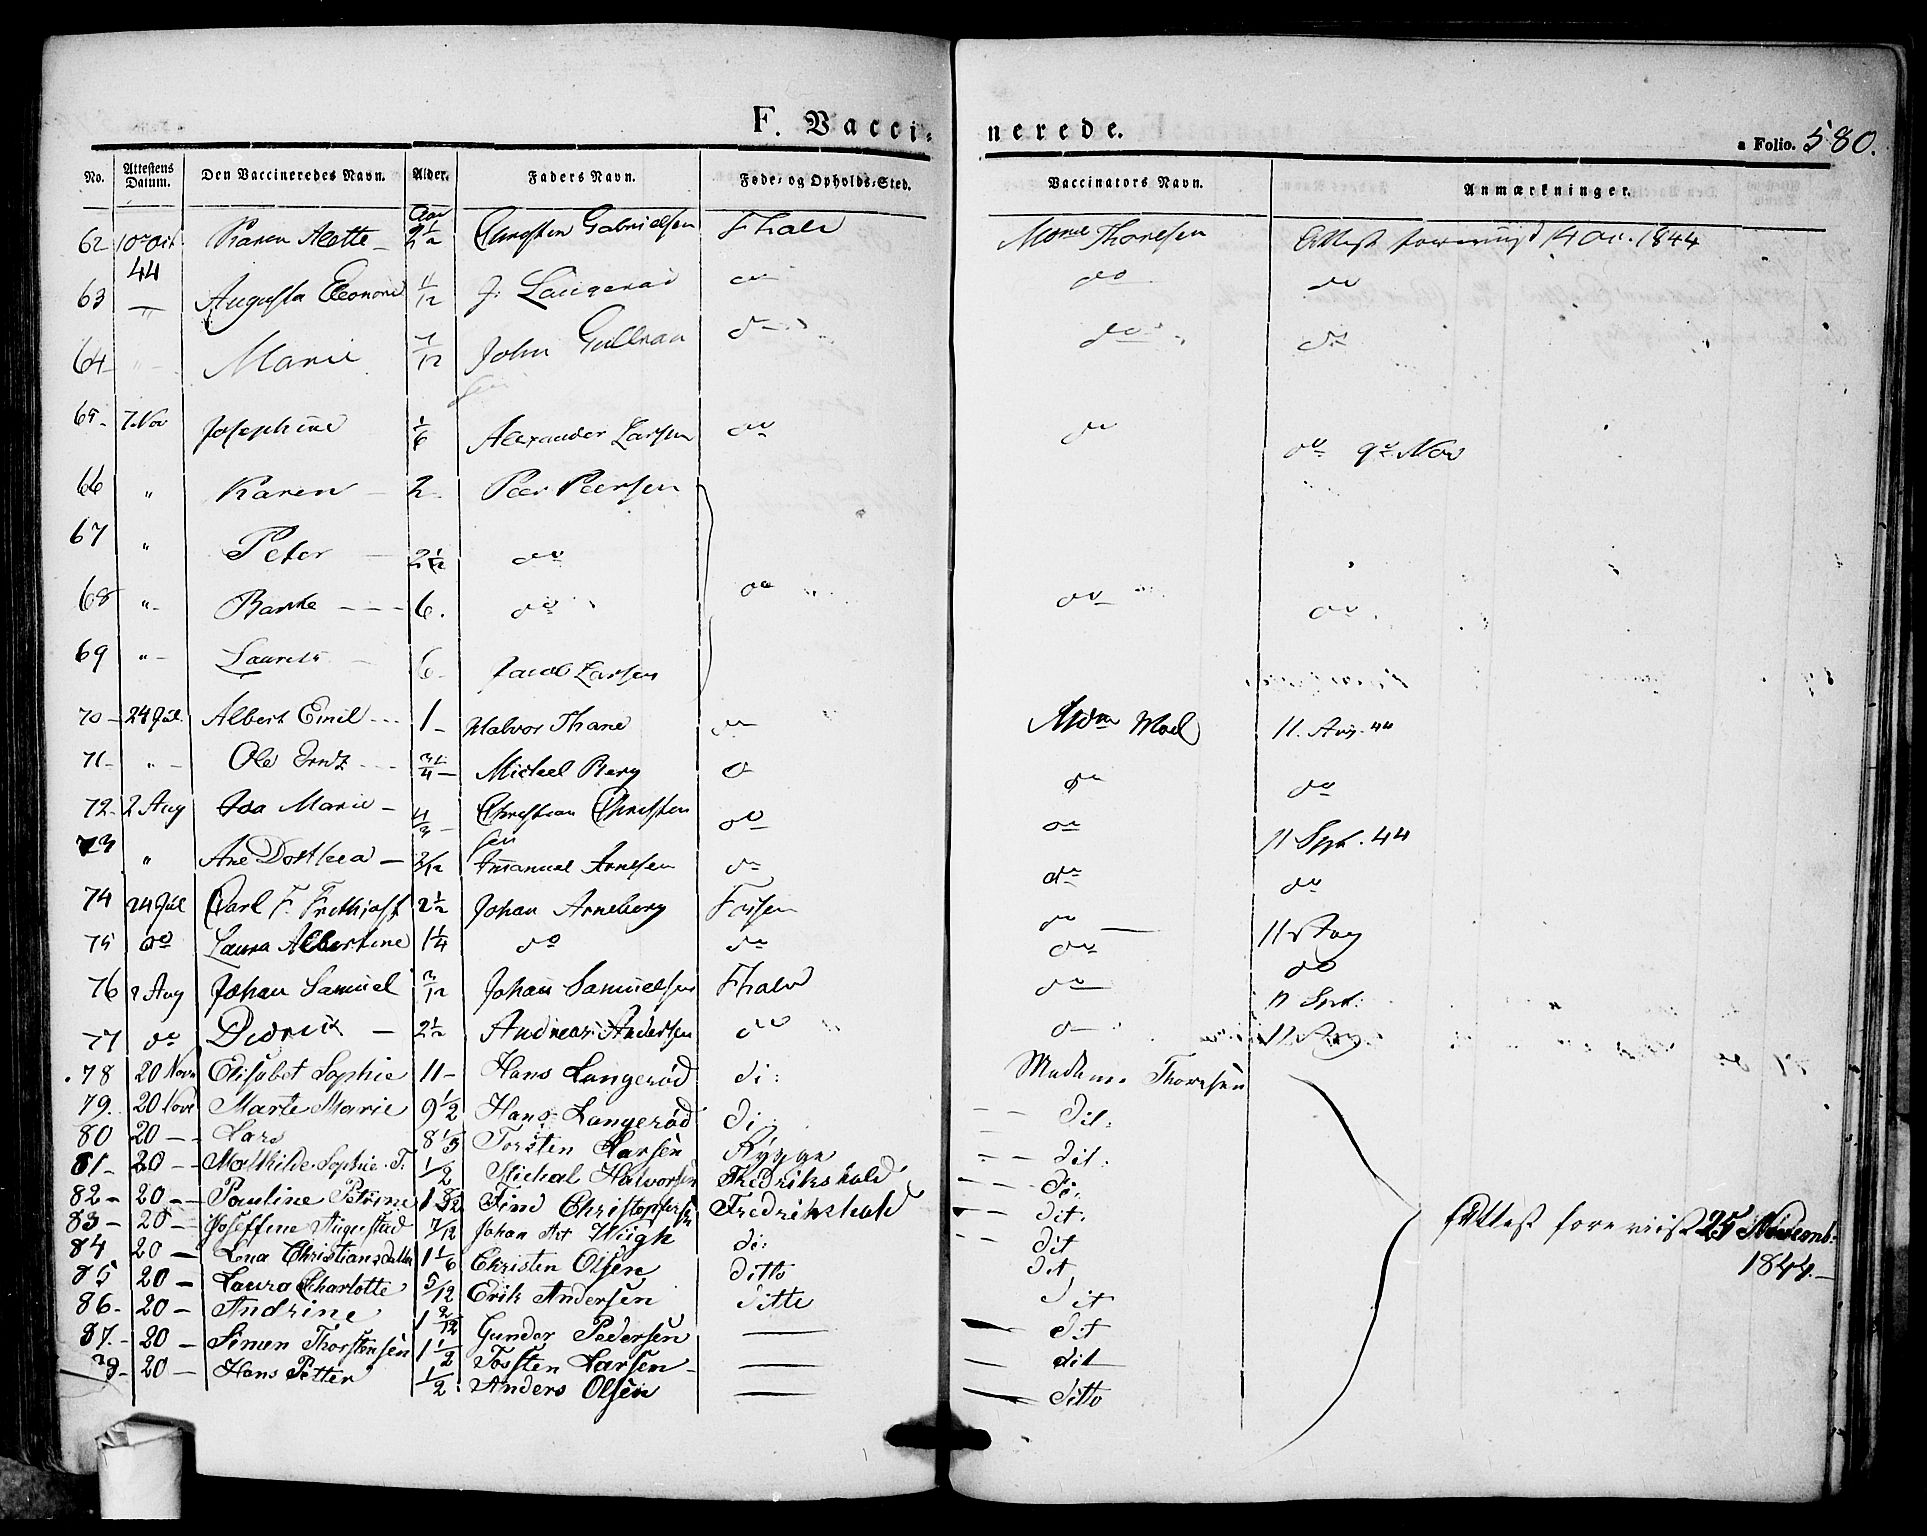 F. Vacci- nerede.
a Folio. 580.
No. Attestens Datum. Den Vaccineredes Navn. Alder. Faders Navn. Føde- og Opholds-Sted. Vaccinators Navn. Anmærkninger.
Aar
62 10 Oct Karen Alette - 2 1/2 Christen Gabrielsen Fhald Thoresen Attest 1844
44
63 — Augusta Eleonore 1/12 J. Langerød do do do
64 " Marie 7/12 John do do do
65- 7 Nov Josephine 1/6 Alexander Larsen do do do 9de Nov
66 " Karen - 2- Peer Peersen
67 " Peter - 2 1/2 do
68 " - - - 6. do do do do
69 " - 6- Jacob Larsen
70- 24 Jul Albert Emil - - 1- Halvor Thane do Mdm Moel 11. Aug. 44
71- " Ole - - 3/4 - Michael Berg do do do
72- 2 Aug Ida Marie - Christian Christen do do 11 Sept. 44
sen
73 " Ane Dorthea - Emanuel Arnesen do do do
74 24 Jul Carl F. Frethjoff 2 1/2 Johan Arneberg Fossen do 11 Aug
75 do Laura Albertine 1 1/4 do do do do
76 2 Aug Johan Samuel 3/12 Johan Samuelsen Fhald do 11 Spt.
77 do Didrick - 2 1/2 Andreas Andersen do do 11 Aug
78 20 Novr Elisabet Sophie 11- Hans Langerød di: Madame Thoresen
79. 20 Novr Marte Marie 9 1/2 Hans Langerød di. - - dit:
80 20 - - Lars 8 1/3 Torsten Larsen Rygge - - dit:
81- 20 - - Mathilde Sophie F. 1/2 Michal Halvorsen Fredrikshald - - - di:
82- 20 - - Pauline Petrine 1 8/12 Christophersen Fredrikshald dit:
83- 20 - Joseffine Augustad 7/12 Johan Wiigh di: - - dit
84 20 - Lena Christiansdatter 1 1/6 Christen Olsen ditto dit
85 20 - Laura Charlotte 5/12 Erik Andersen ditto dit
86- 20 - Andrine 1 2/12 Gunder Pedersen — — dit
87- 20 - Simen Thorstensen 1 1/2 Torsten Larsen - — — dit
20 - Hans Petter 1/2 Anders Olsen — — ditto
Attest foreviist 25 Novemb:
1844.-